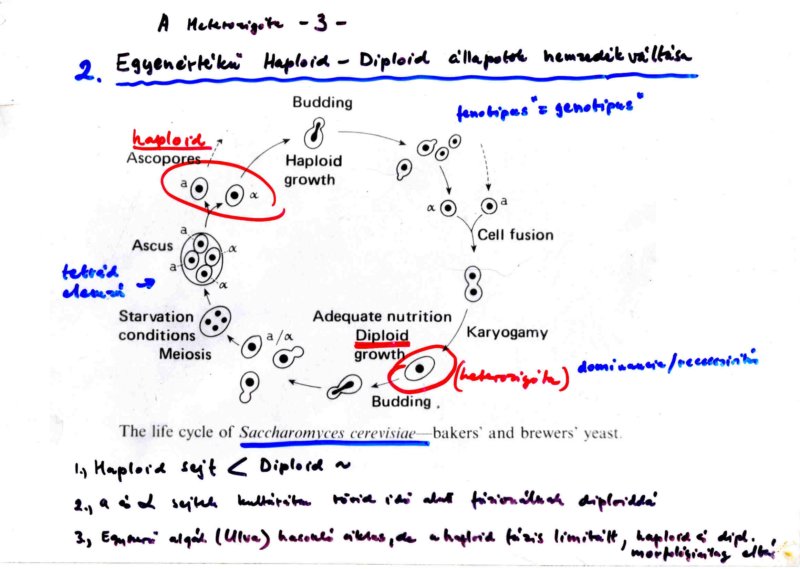 A Heterozigóta - 3 -
2. Egyenértékű Haploid - Diploid állapotok nemzedékváltása
Budding
"fenotipus" = "genotipus"
haploid
Ascopores
Haploid
growth
a
α
α
a
Cell fusion
Ascus
a
α
a
α
tetrád
elemző →
Starvation
conditions
Meiosis
a/α
Adequate nutrition
Diploid
growth
Karyogamy
(heterozigóta) dominancia/recesszivitás
Budding
The life cycle of Saccharomyces cerevisiae—bakers' and brewers' yeast.
1., Haploid sejt < Diploid ~
2., a és α sejtek kultúrában rövid idő alatt fúzionálnak diploiddá
3., Egyszerű algák (Ulva) hasonló ciklus, de a haploid fázis limitált, haploid és dipl.
morfológiailag